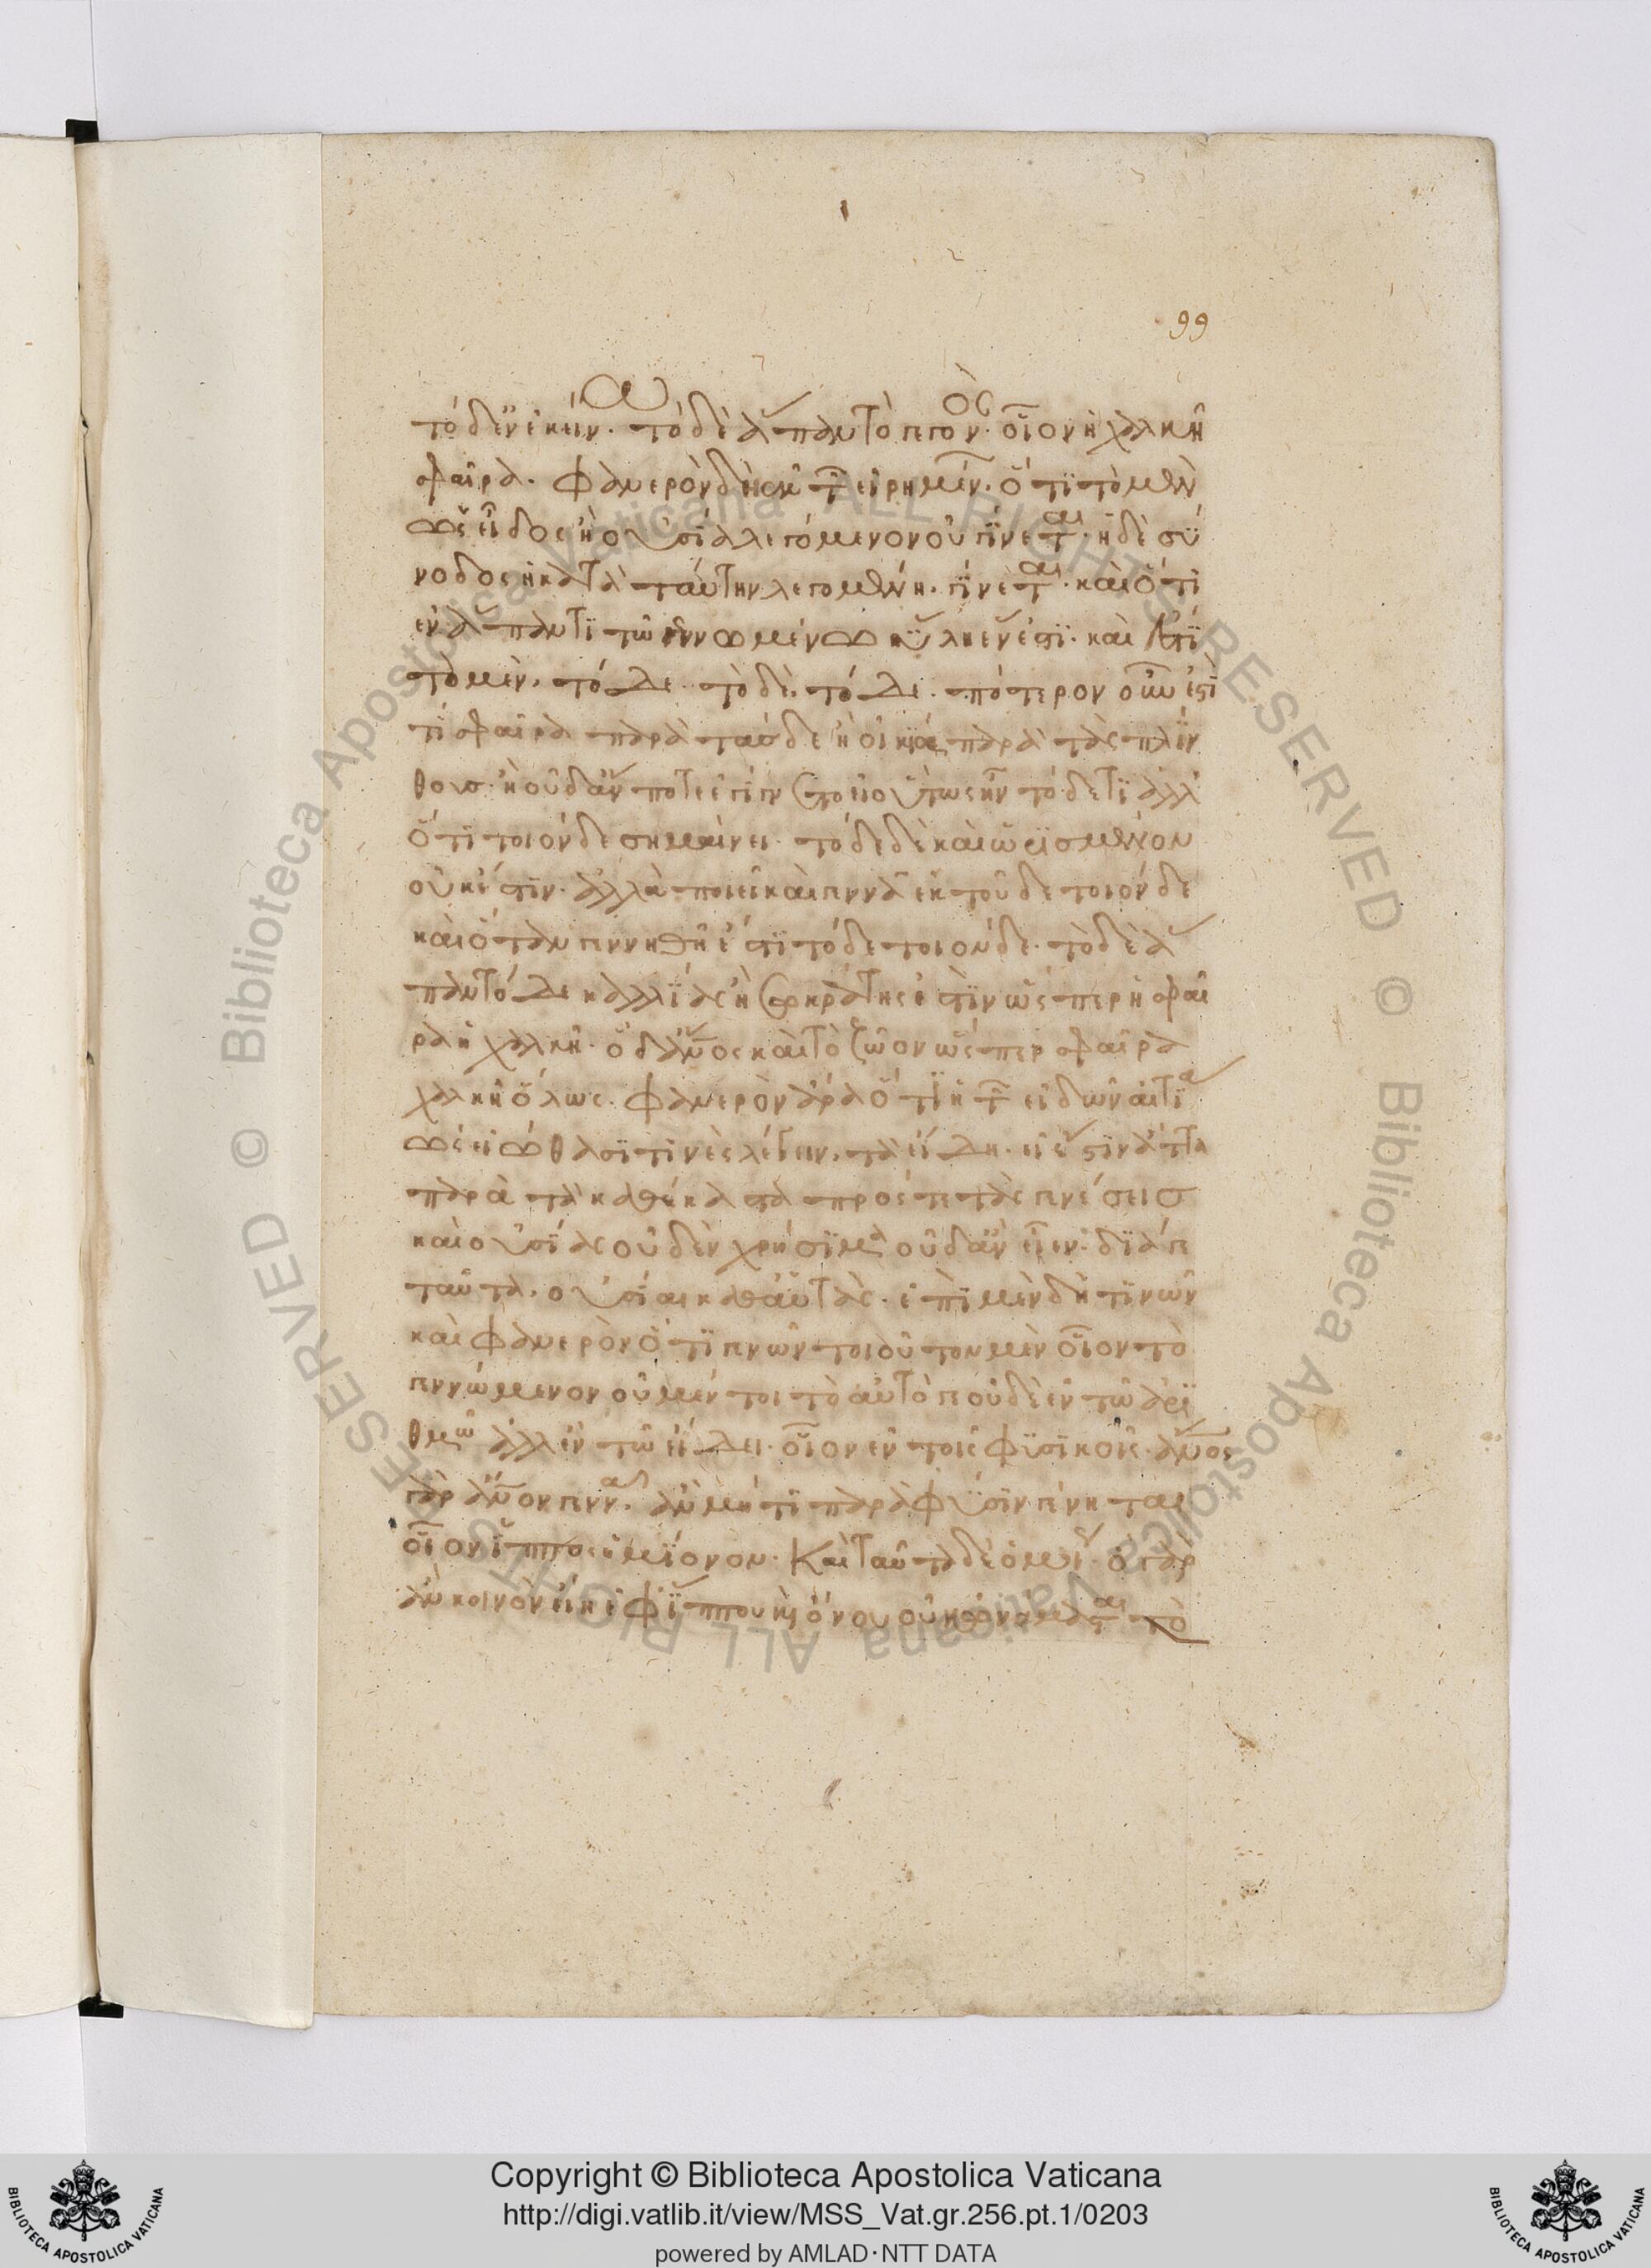 99
τὸ δ' ἐν ἐκείνω. τὸ δὲ ἅπαν τὸ γεγονός. οἷον ἡ χαλκῆ
σφαῖρα. φανερὸν δὴ ἐκ τῶν εἰρημένων. ὅτι τὸ μὲν
ὡς εἶδος ἢ οὐσία λεγόμενον οὐ γίνεται. ἡ δὲ σύ
νοδος ἡ κατὰ ταύτην λεγομένη. γίνεται. καὶ ὅτι
ἐν ἅπαντι τῶ γεννωμένω ὕλη ἔνεστι. καὶ ἔστι
τὸ μὲν, τόδε. τὸ δὲ, τόδε. πότερον οὖν ἐστί
τι σφαῖρα παρὰ τάσδε ἢ οἰκία παρὰ τὰς πλίν
θους. ἢ οὐδ' ἄν ποτε ἐγίγνετο εἰ οὕτως ἦν τόδε τι ἀλλ'
ὅτι τοιόνδε σημαίνει. τόδε δὲ καὶ ὡρισμένον
οὐκ ἔστιν. ἀλλὰ ποιεῖ καὶ γεννᾶ ἐκ τοῦδε τοιόνδε
καὶ ὅταν γεννηθῆ ἔστι τόδε τοιόνδε. τὸ δὲ ἅ
παν τόδε καλλίας ἢ σωκράτης ἐστὶν ὥσπερ ἡ σφαῖ
ρα ἡ χαλκῆ. ὁ δ' ἄνθρωπος καὶ τὸ ζῶον ὥσπερ σφαῖρα
χαλκῆ ὅλως. φανερὸν ἄρα ὅτι ἡ τῶν εἰδῶν αἰτία
ὡς εἰώθασί τινες λέγειν, τὰ εἴδη. εἰ ἔστιν ἄττα
παρὰ τὰ καθέκαστα πρός γε τὰς γενέσεις
καὶ οὐσίας οὐδὲν χρήσιμα οὐδ' ἂν εἶεν. διά γε
ταῦτα. οὐσίαι καθαὑτάς. ἐπὶ μὲν δή τινων
καὶ φανερὸν ὅτι γεννῶν τοιοῦτον μὲν οἷον τὸ
γεννώμενον οὐ μέντοι τὸ αὐτό γε οὐδὲ ἓν τῶ ἀρι
θμῶ ἀλλ' ἓν τῶ εἴδει. οἷον ἐν τοῖς φυσικοῖς. ἄνθρωπος
γὰρ ἄνθρωπον γεννᾶ. ἂν μή τι παρὰ φύσιν γένηται
οἷον ἵππος ἡμίονον. καὶ ταῦτα δὲ ὁμοίως. ὃ γὰρ
ἂν κοινὸν εἴη ἐφ' ἵππου καὶ ὄνου οὐκ ὠνόμασται τὸ
Copyright © Biblioteca Apostolica Vaticana
http://digi.vatlib.it/view/MSS_Vat.gr.256.pt.1/0203
powered by AMLAD·NTT DATA